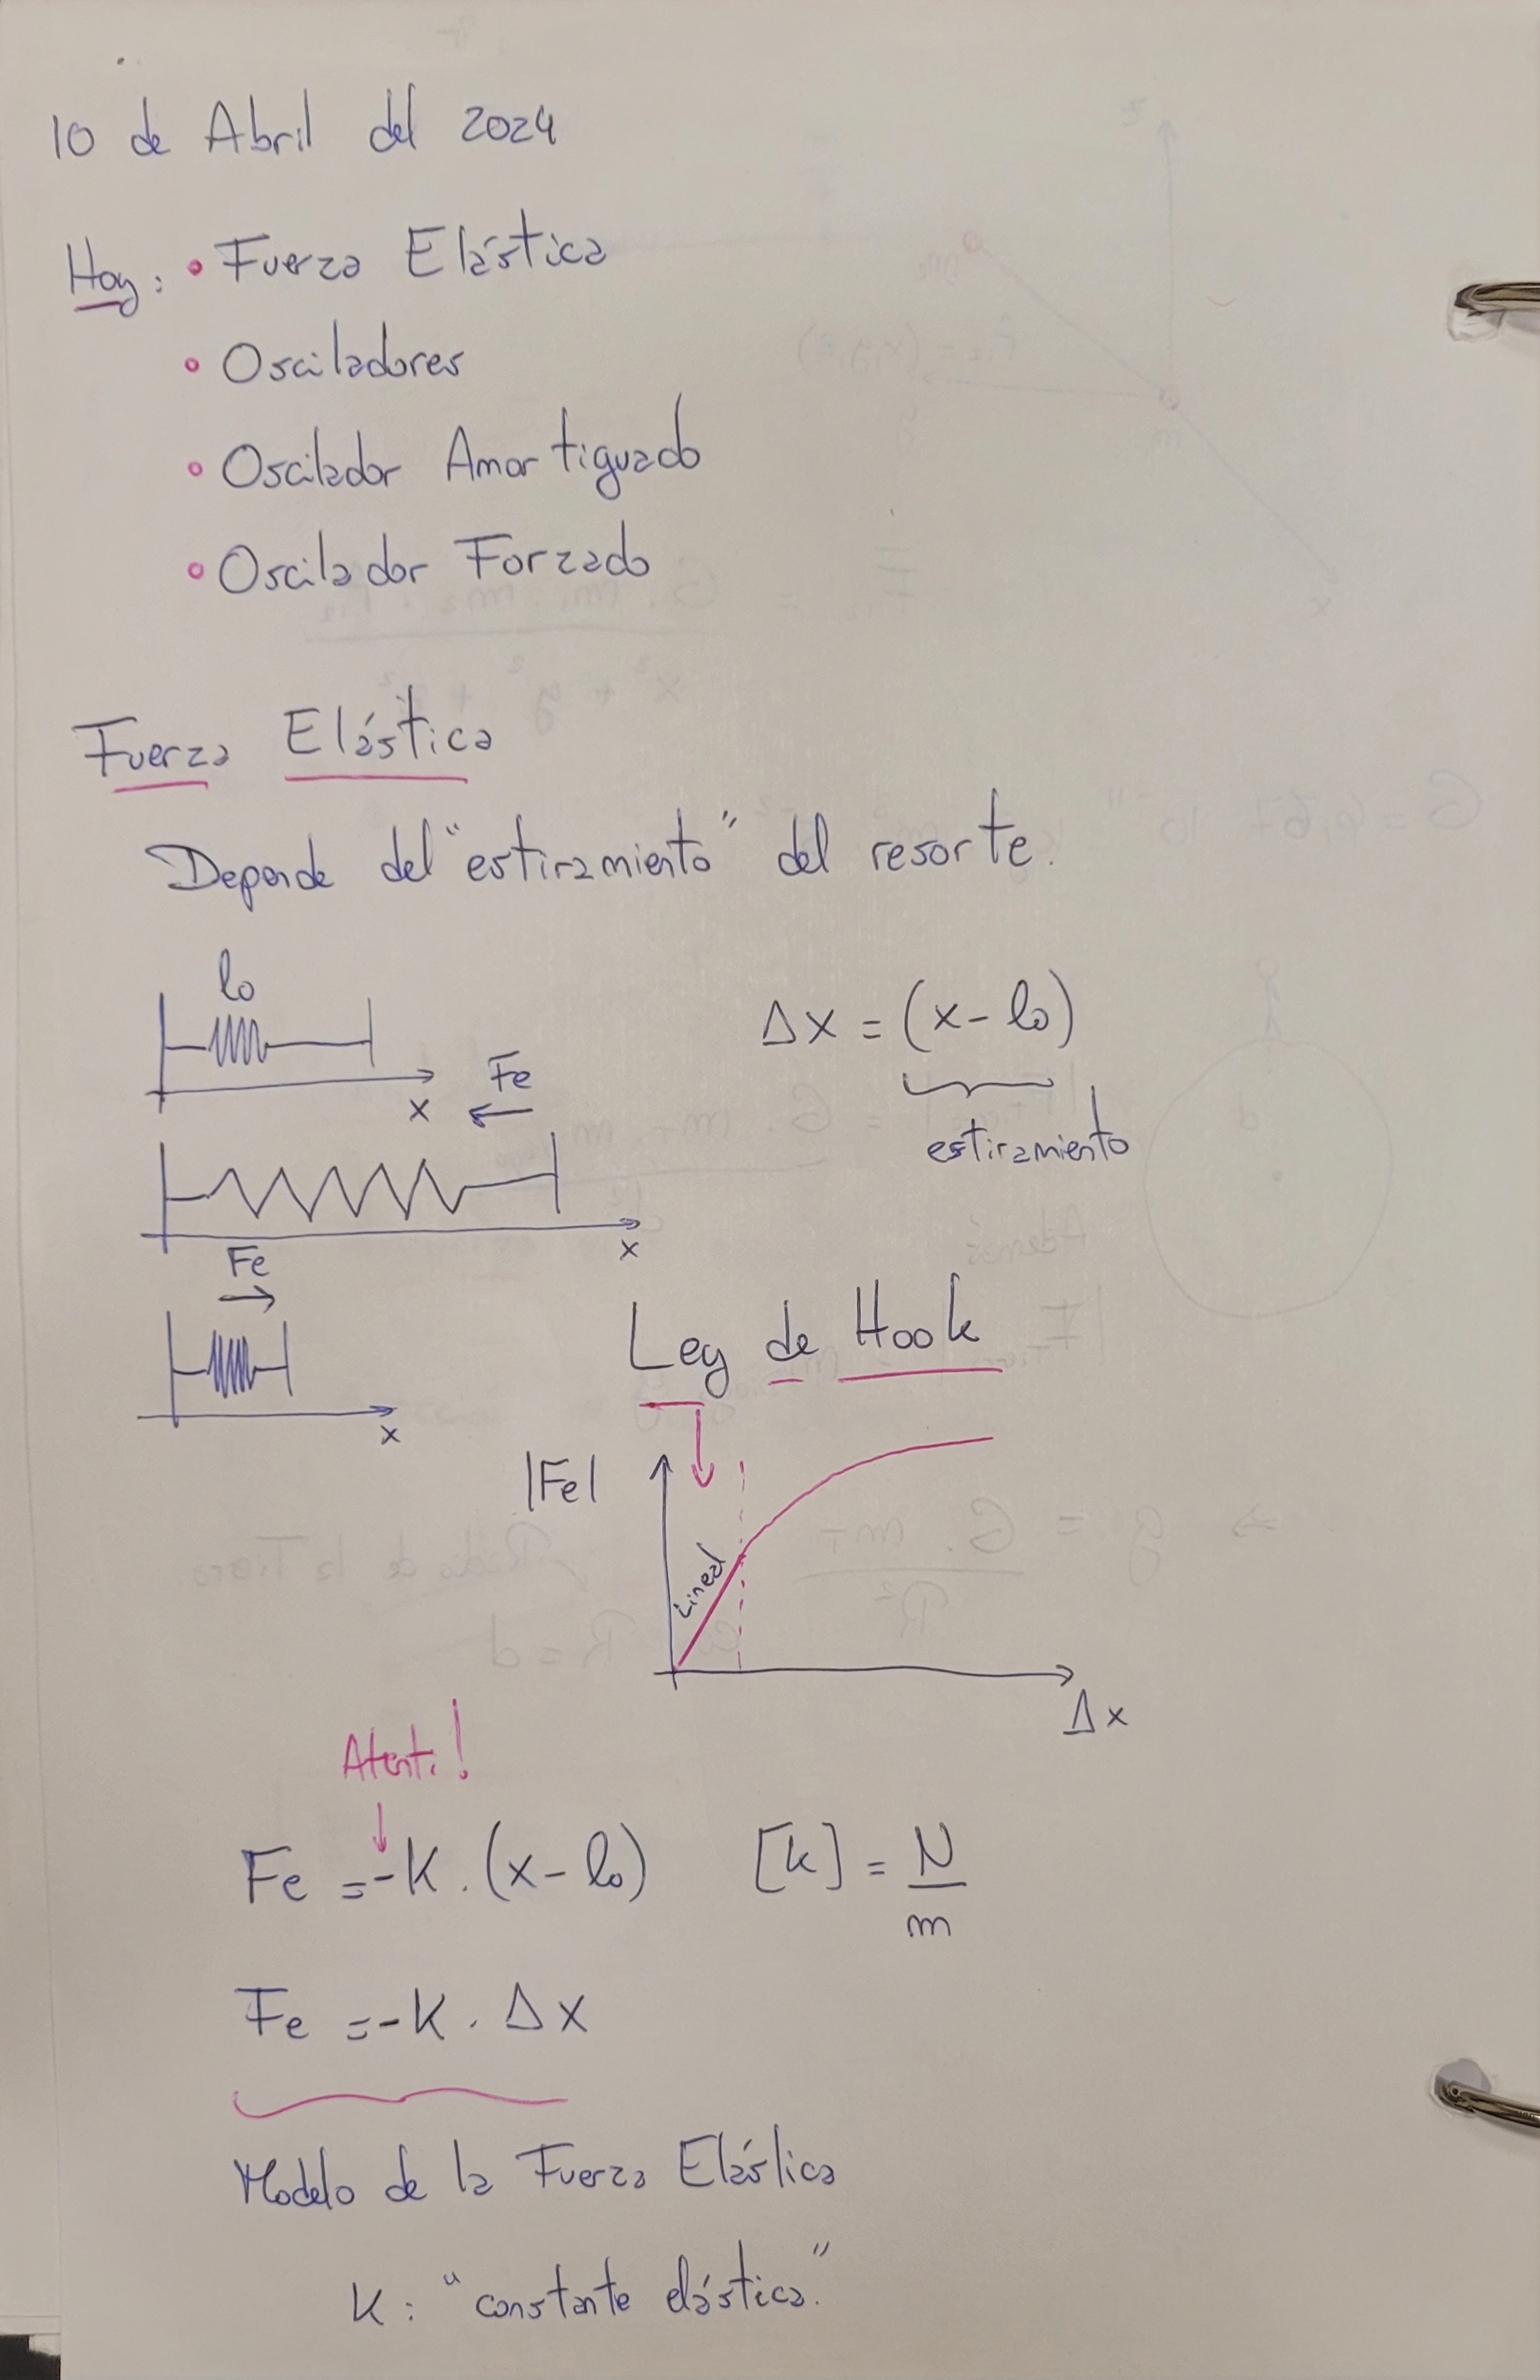 10 de Abril del 2024
Hoy: • Fuerza Elástica
• Osciladores
• Oscilador Amortiguado
• Oscilador Forzado
Fuerza Elástica
Depende del "estiramiento" del resorte.
lo
Δx = (x - lo)
estiramiento
x
Fe
x
Fe
x
Ley de Hook
|Fe|
Lineal
Δx
Atenti!
Fe = -K . (x - lo) [k] = N/m
Fe = -K . Δx
Modelo de la Fuerza Elástica
K: "constante elástica."